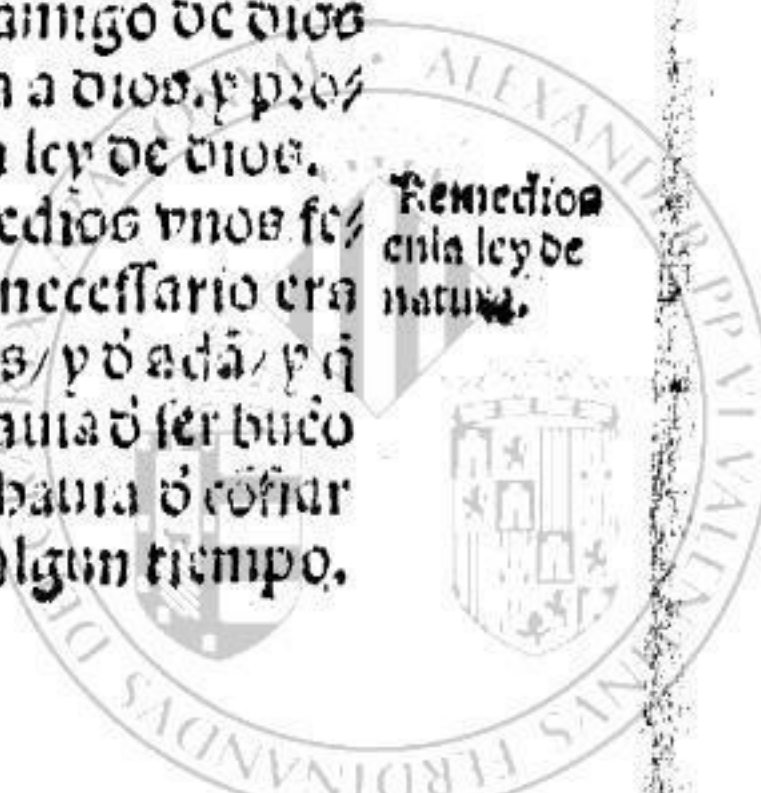 amigo de dios
a dios. y pro⸗
ley de dios.
edios vnos se⸗
necessario era
s/ y d̾ adā/ y q̄
auia d̾ ser buēo
hauia d̾ cōfiar
algun tiempo.
Remedios
enla ley de
natura.
ALEXANDER PP VI VALEN
NVS FERDINANDVS